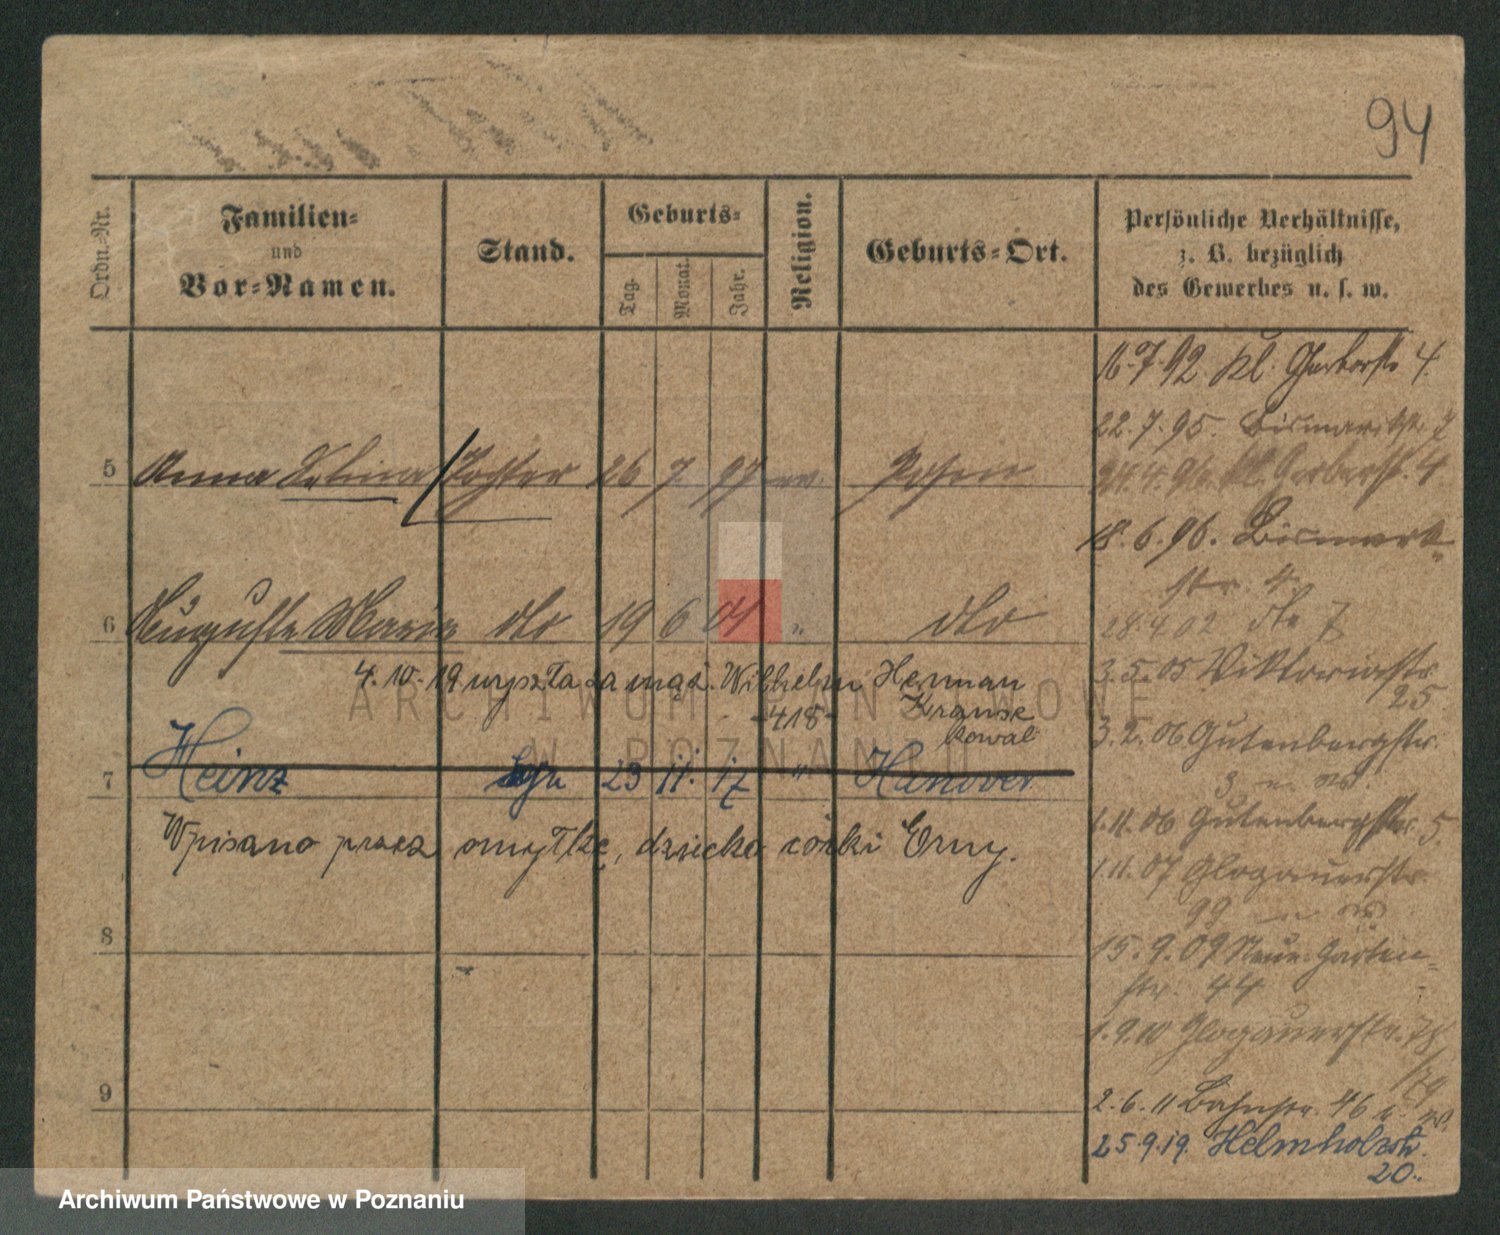 94
Ordn.-Nr.
Familien-
und
Vor-Namen.
Stand.
Geburts-
Tag.
Monat.
Jahr.
Religion.
Geburts-Ort.
Persönliche Verhältnisse,
z. B. bezüglich
des Gewerbes u. s. w.
16.7.92 Kl. Gerberstr 4.
22.7.95. Bismarckstr. 7
24.4.96. Kl. Gerberstr. 4
5 Anna Tochter 26 7 97 ev. Posen
18.6.96. Bismark-
str. 4
6 Auguste Maria dto 19 6 01 " dto
28.4.02 dto 7
4.10.19 wyszła za mąż. Wilhelm Herman
3.5.05 Viktoriastr.
25
-418- Krause
kowal
3.2.06 Gutenbergstr.
7 Heinz 23 11. 17 " Hanover
1.11.06 Gutenbergstr. 5
Wpisano przez omyłkę, dziecko córki Erny.
1.11.07 Glogauerstr.
99
8
15.9.09 Neue Garten-
str. 44
1.9.10 Glogauerstr.
9
2.6.11 Bahnstr. 46
25.9.19. Helmholzstr.
20.
ARCHIWUM PAŃSTWOWE
W POZNANIU
Archiwum Państwowe w Poznaniu